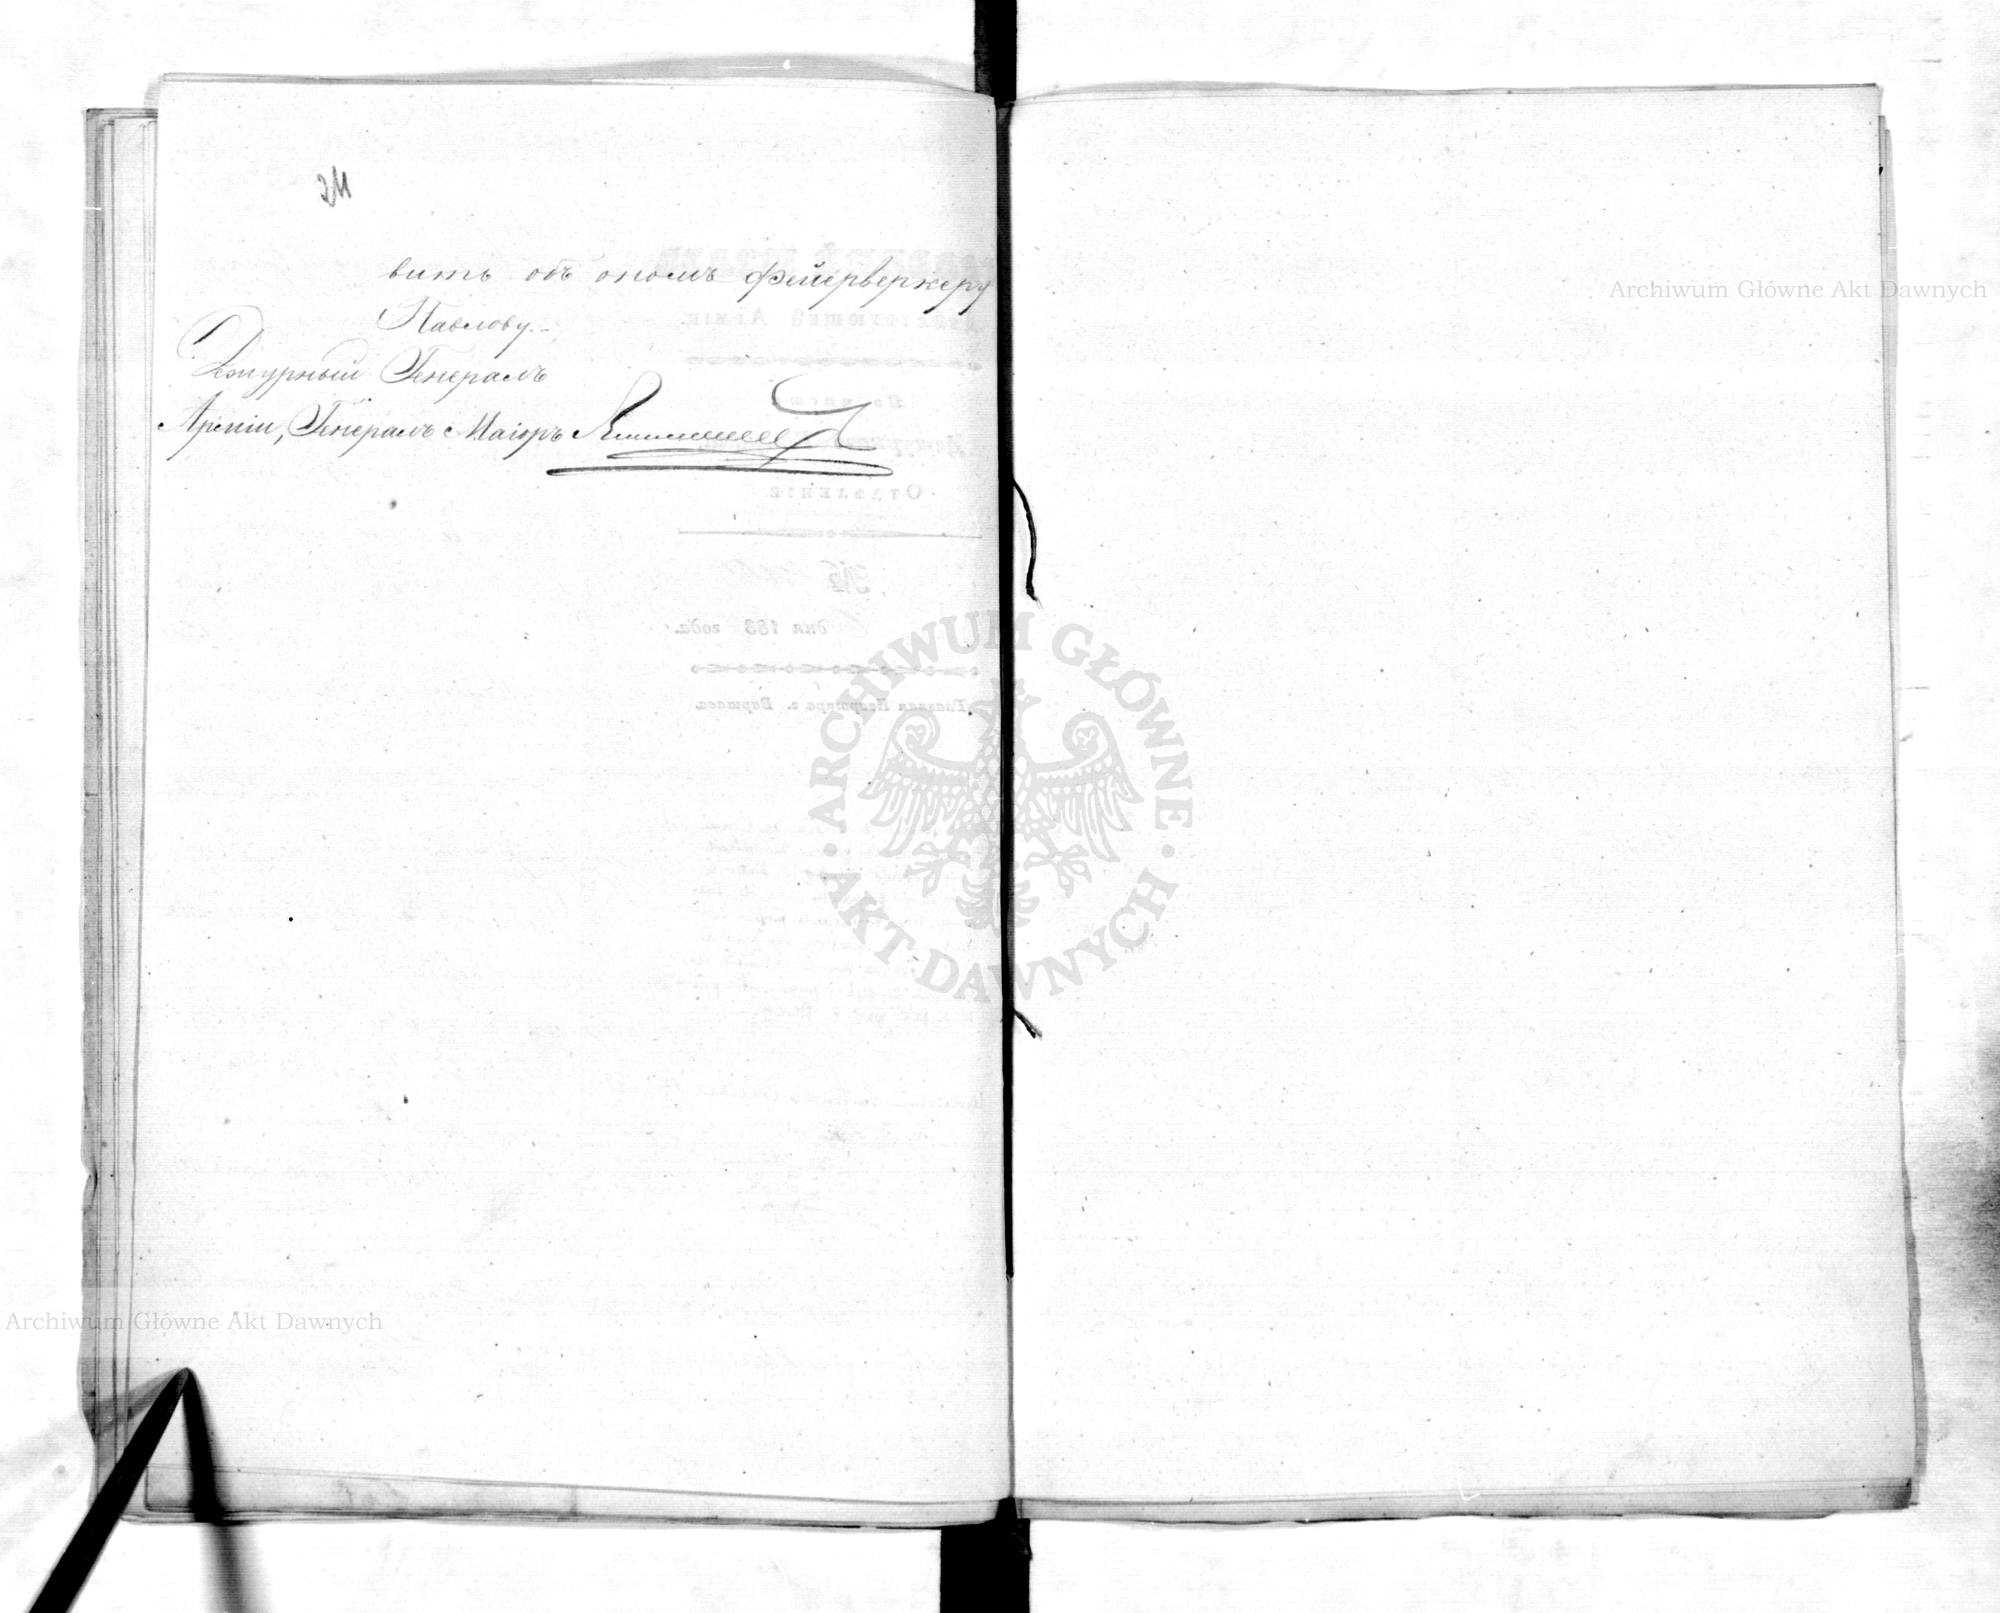 вить объ ономъ фейерверкеру
Павлову.
Дежурный Генералъ
Арміи, Генералъ Маіоръ
Archiwum Główne Akt Dawnych
ARCHIWUM GŁÓWNE
AKT DAWNYCH
Archiwum Główne Akt Dawnych